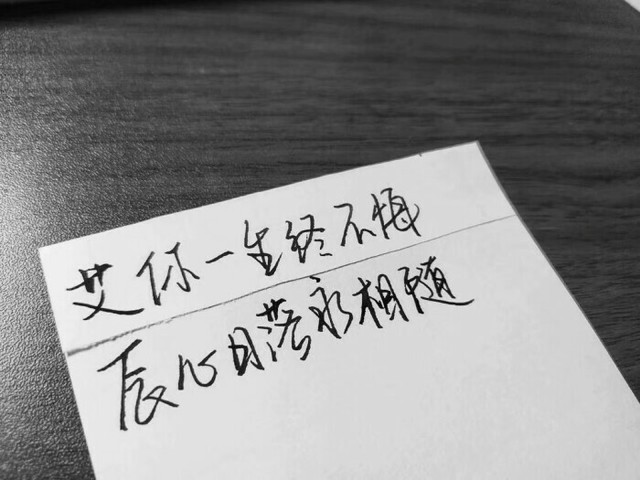 艾你一生终不悔
辰心日落永相随